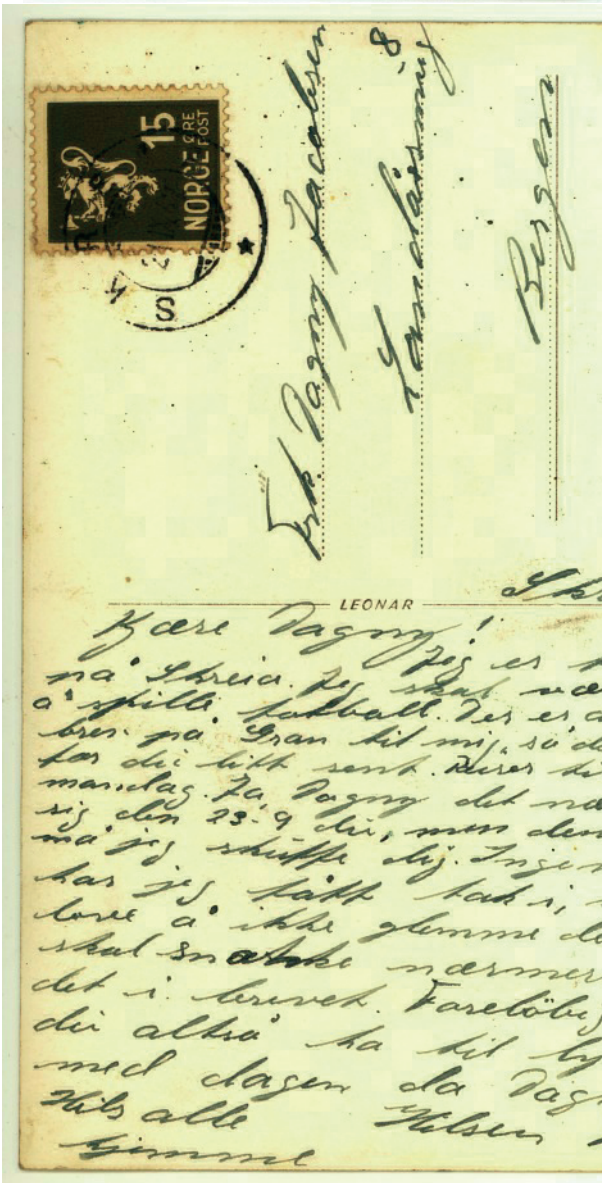 15
NORGE
ØRE
POST
S
Frk. Dagny Jacobsen
Landåsvng 8
Bergen
LEONAR
Skr
Kjære Dagny!
Jeg er n
nå Skreia. Jeg skal vær
å spille fotball. Der er
brev på Gran til mig, så
får du litt sent. Reiser til
mandag. Ja, Dagny det næ
sig den 23-9 du, men den
må jeg skuffe dig. Ingen
har jeg fått tak i,
love å ikke glemme de
skal snakke nærmer
det i brevet. Foreløbig
du altså ha til ly
med dagen da Dag
Hils alle Hilsen
hjemme